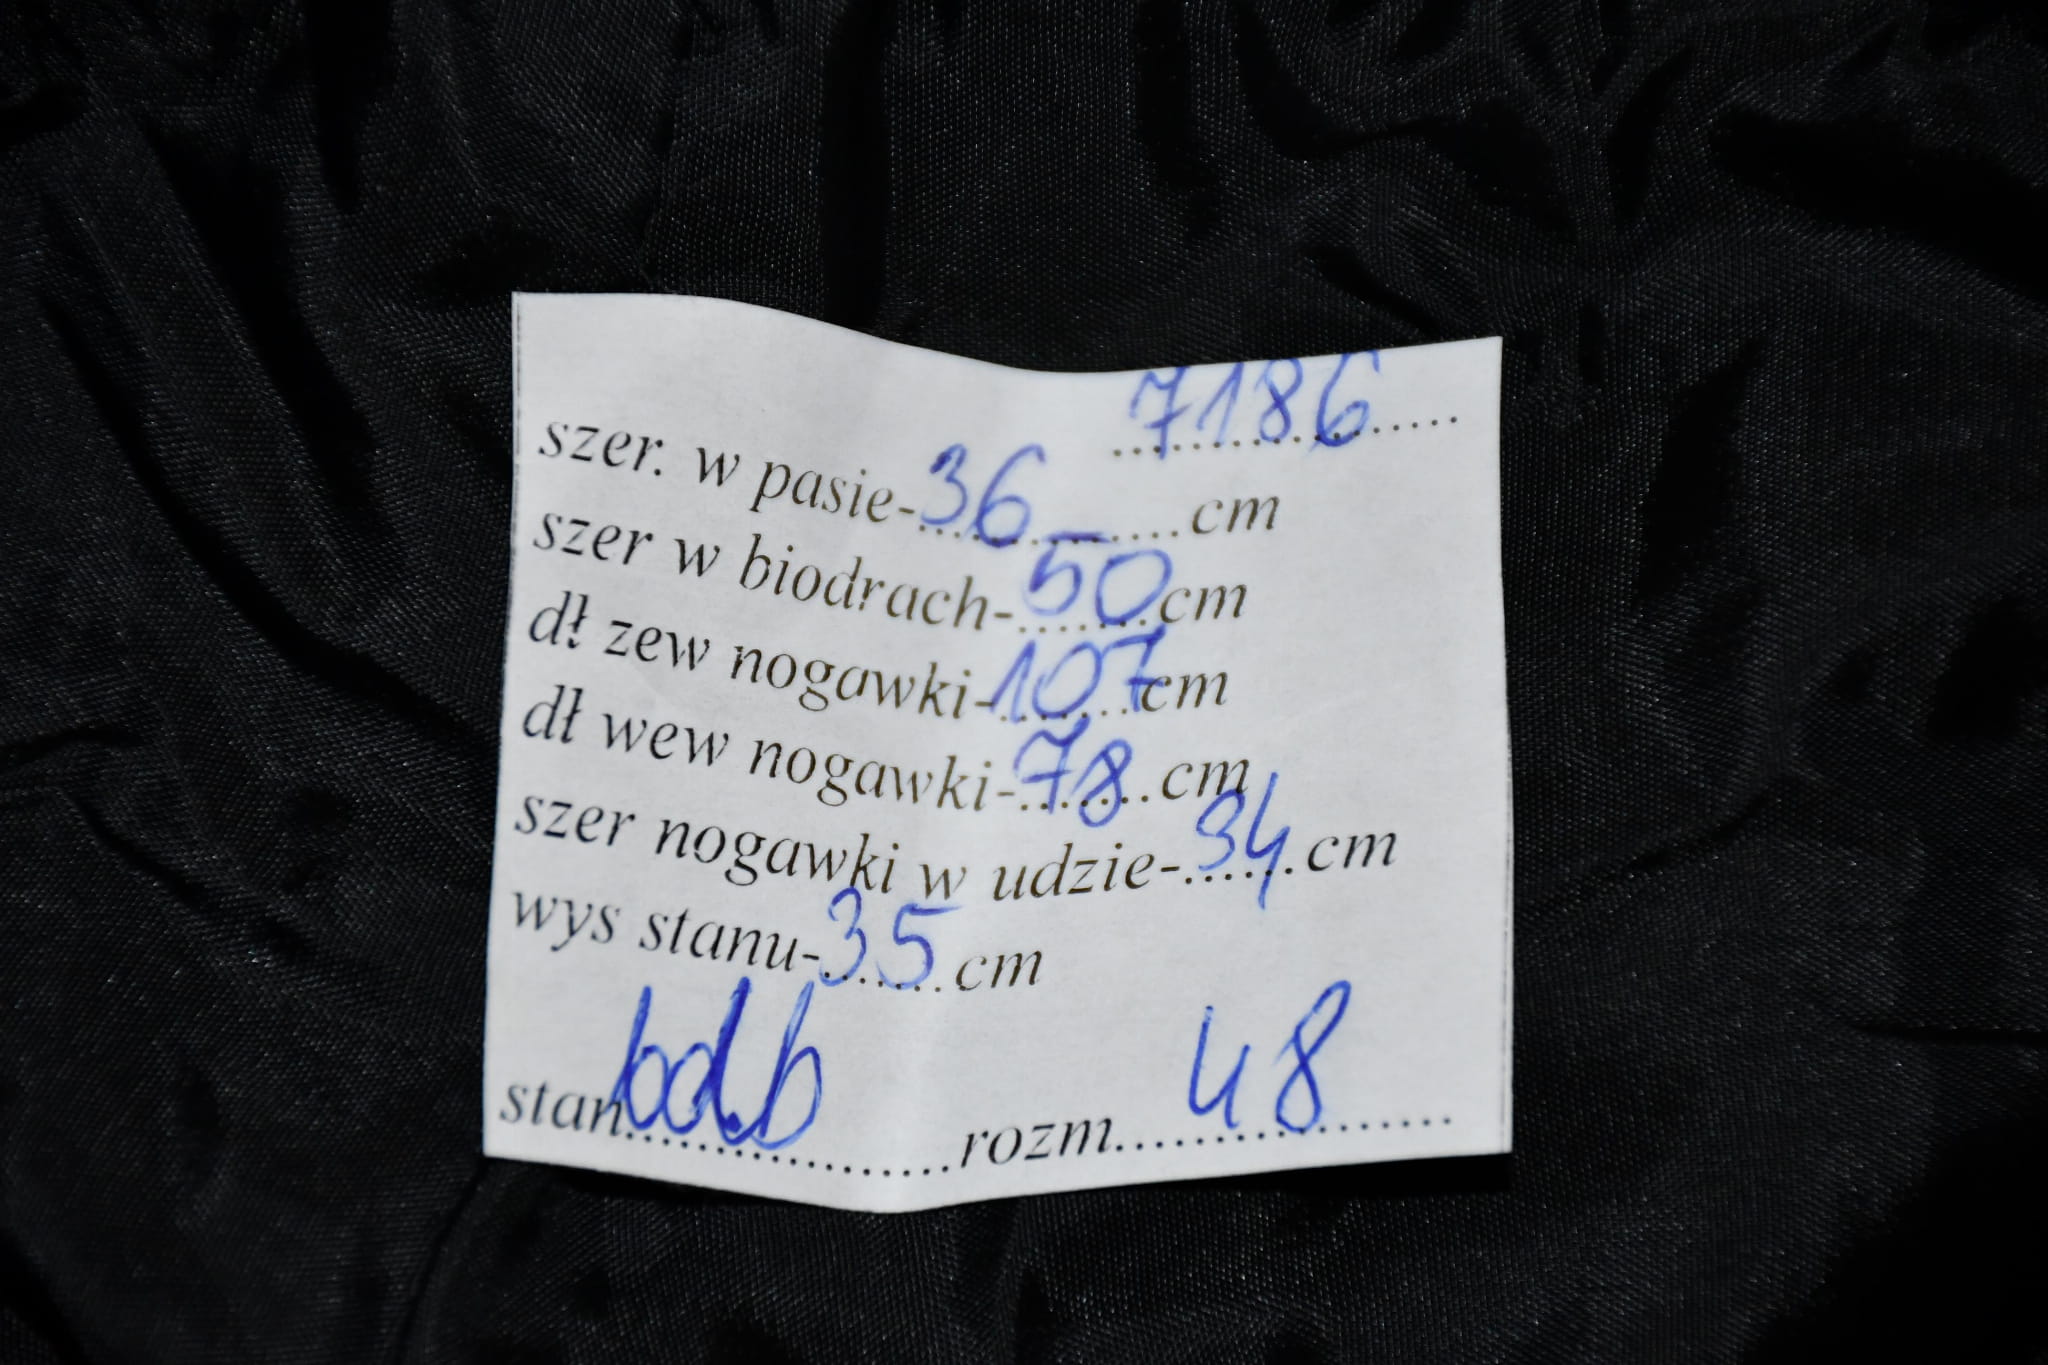 7186
szer. w pasie-36 cm
szer w biodrach-50 cm
dł zew nogawki-107 cm
dł wew nogawki-78 cm
szer nogawki w udzie-34 cm
wys stanu-35 cm
stan bdb rozm 48